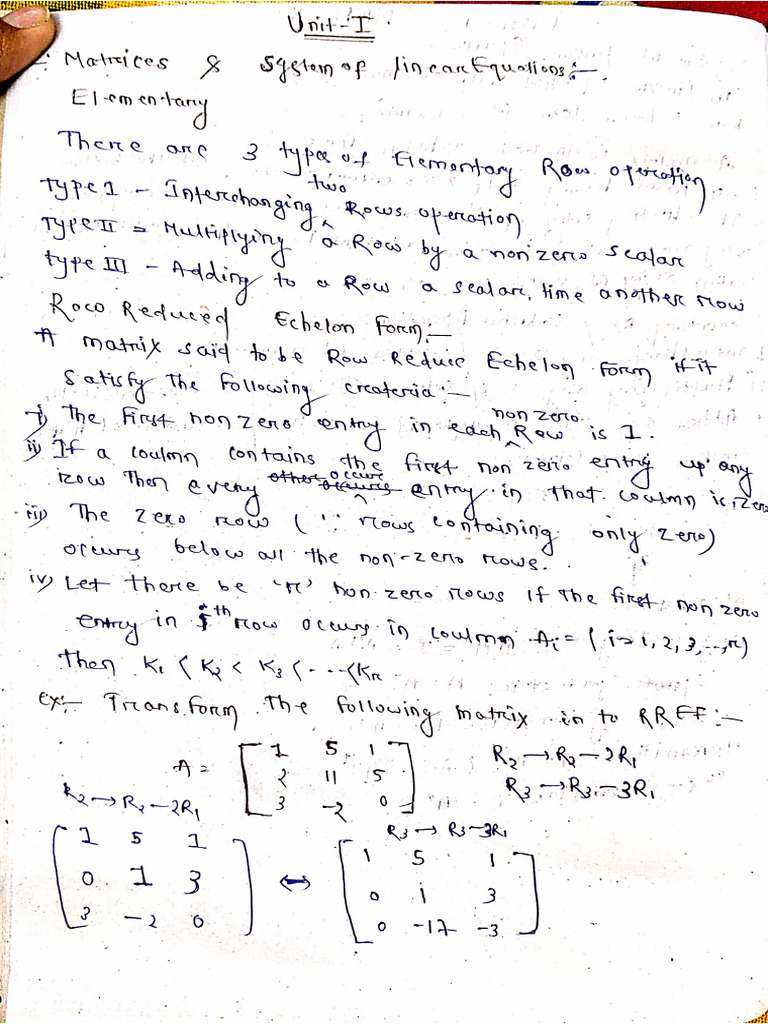 Unit-I
:- Matrices & System of linear Equations:-
Elementary
There are 3 types of Elementary Row operation.
type I - Interchanging two Rows operation
type II = Multiplying a Row by a non zero scalar
type III - Adding to a Row a scalar, time another row
Row Reduced Echelon Form:-
A matrix said to be Row Reduce Echelon form if it
satisfy the following createria:-
i) The first non zero entry in each non zero Row is 1.
ii) If a coulmn contains the first non zero entry up any
row then every other occure entry in that coulmn is, zero
iii) The zero row (∵ rows containing only zero)
occurs below all the non-zero rows.
iv) Let there be 'r' non zero rows if the first, non zero
entry in ith row occurs in coulmn Ai = (i=1, 2, 3, ..., r)
then K1 < K2 < K3 < ---- < Kr
ex:- Transform the following matrix in to RREF:-
A = [1 5 1
2 11 5
3 -2 0]
R2 → R2 - 2R1
R3 → R3 - 3R1
R2 → R2 - 2R1
[1 5 1
0 1 3
3 -2 0]
↔
R3 → R3 - 3R1
[1 5 1
0 1 3
0 -17 -3]